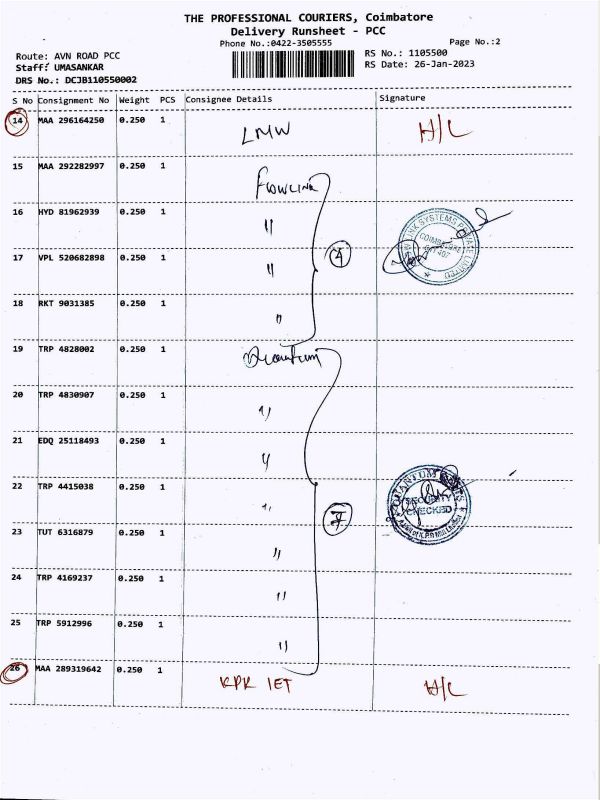 THE PROFESSIONAL COURIERS, Coimbatore
Delivery Runsheet - PCC
Phone No.:0422-3505555
Page No.:2
Route: AVN ROAD PCC
RS No.: 1105500
Staff: UMASANKAR
RS Date: 26-Jan-2023
DRS No.: DCJB110550002
S No Consignment No Weight PCS Consignee Details Signature
14 MAA 296164250 0.250 1 LMW H/L
15 MAA 292282997 0.250 1 FLOWLINK
16 HYD 81962939 0.250 1 "
17 VPL 520682898 0.250 1 " 4
18 RKT 9031385 0.250 1 "
19 TRP 4828002 0.250 1 Quantum
20 TRP 4830907 0.250 1 "
21 EDQ 25118493 0.250 1 "
22 TRP 4415038 0.250 1 " 7
23 TUT 6316879 0.250 1 "
24 TRP 4169237 0.250 1 "
25 TRP 5912996 0.250 1 "
26 MAA 289319642 0.250 1 KPR IET H/L
LINK SYSTEMS PRIVATE LIMITED
COIMBATORE
QUANTUM
SECURITY
CHECKED